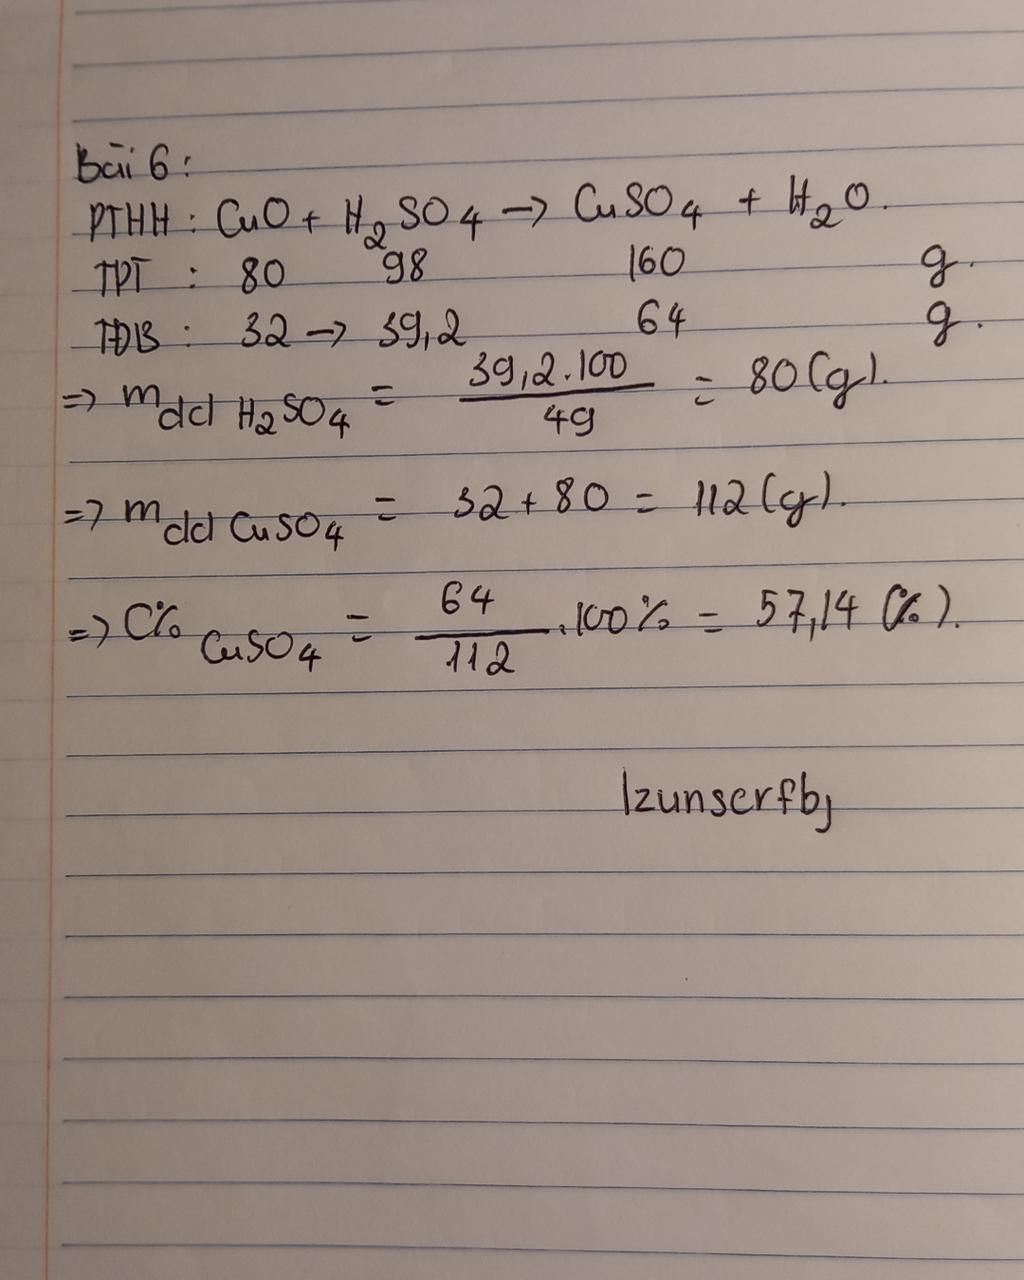 Bài 6:
PTHH: CuO + H₂SO₄ → CuSO₄ + H₂O.
TPT : 80 98 160 g.
TĐB : 32 → 39,2 64 g.
=> m dd H₂SO₄ = 39,2.100 / 49 = 80 (g).
=> m dd CuSO₄ = 32 + 80 = 112 (g).
=> C% CuSO₄ = 64 / 112 .100% = 57,14 (%).
lzunscrfbj